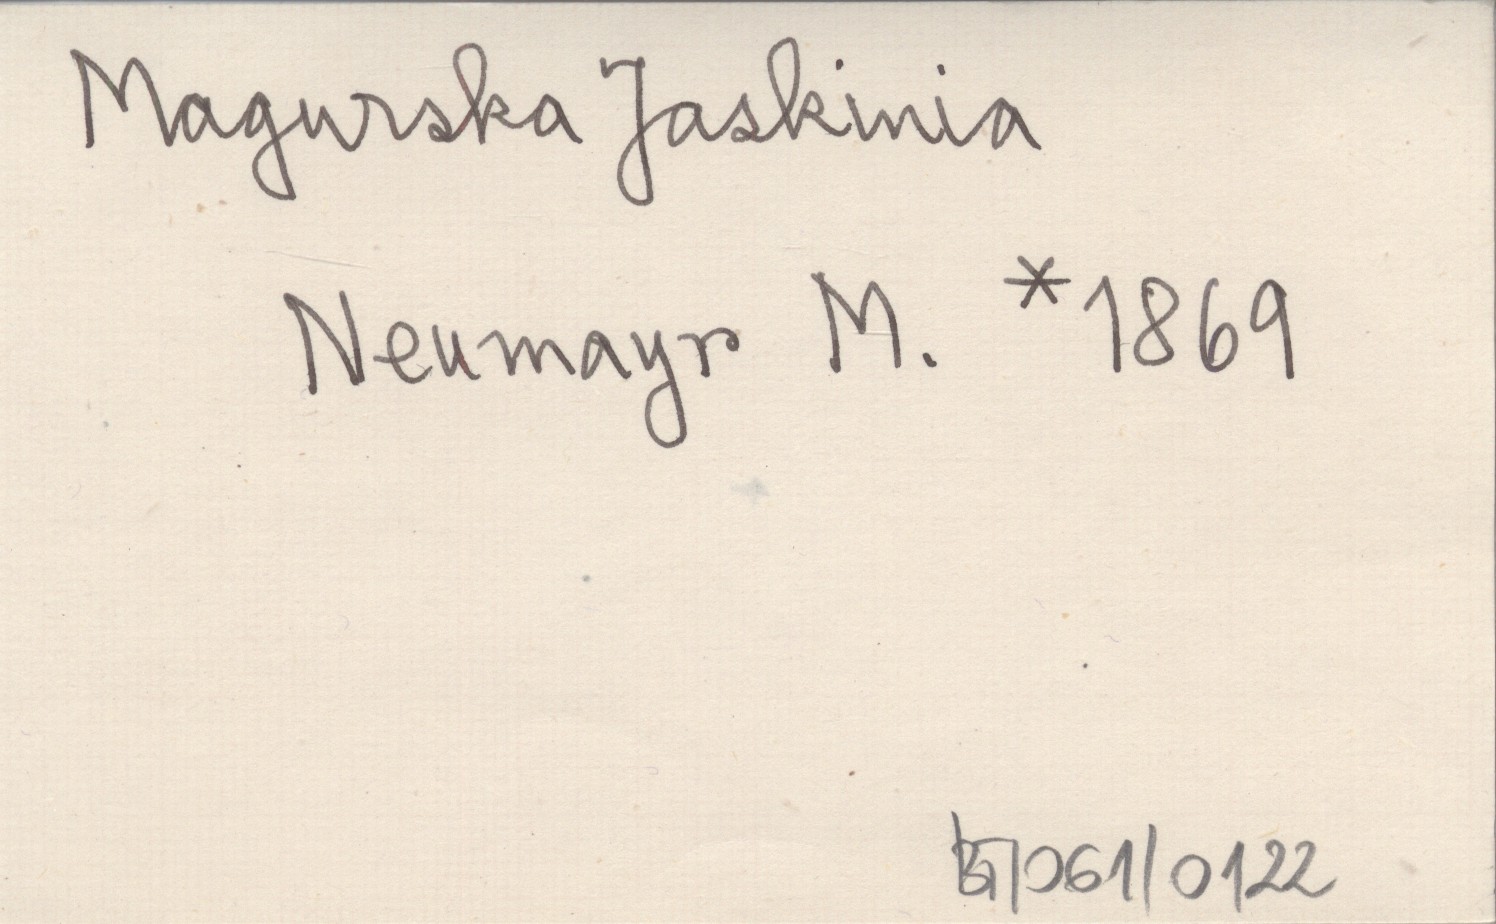 Magurska Jaskinia
Neumayr M. *1869
/061/0122